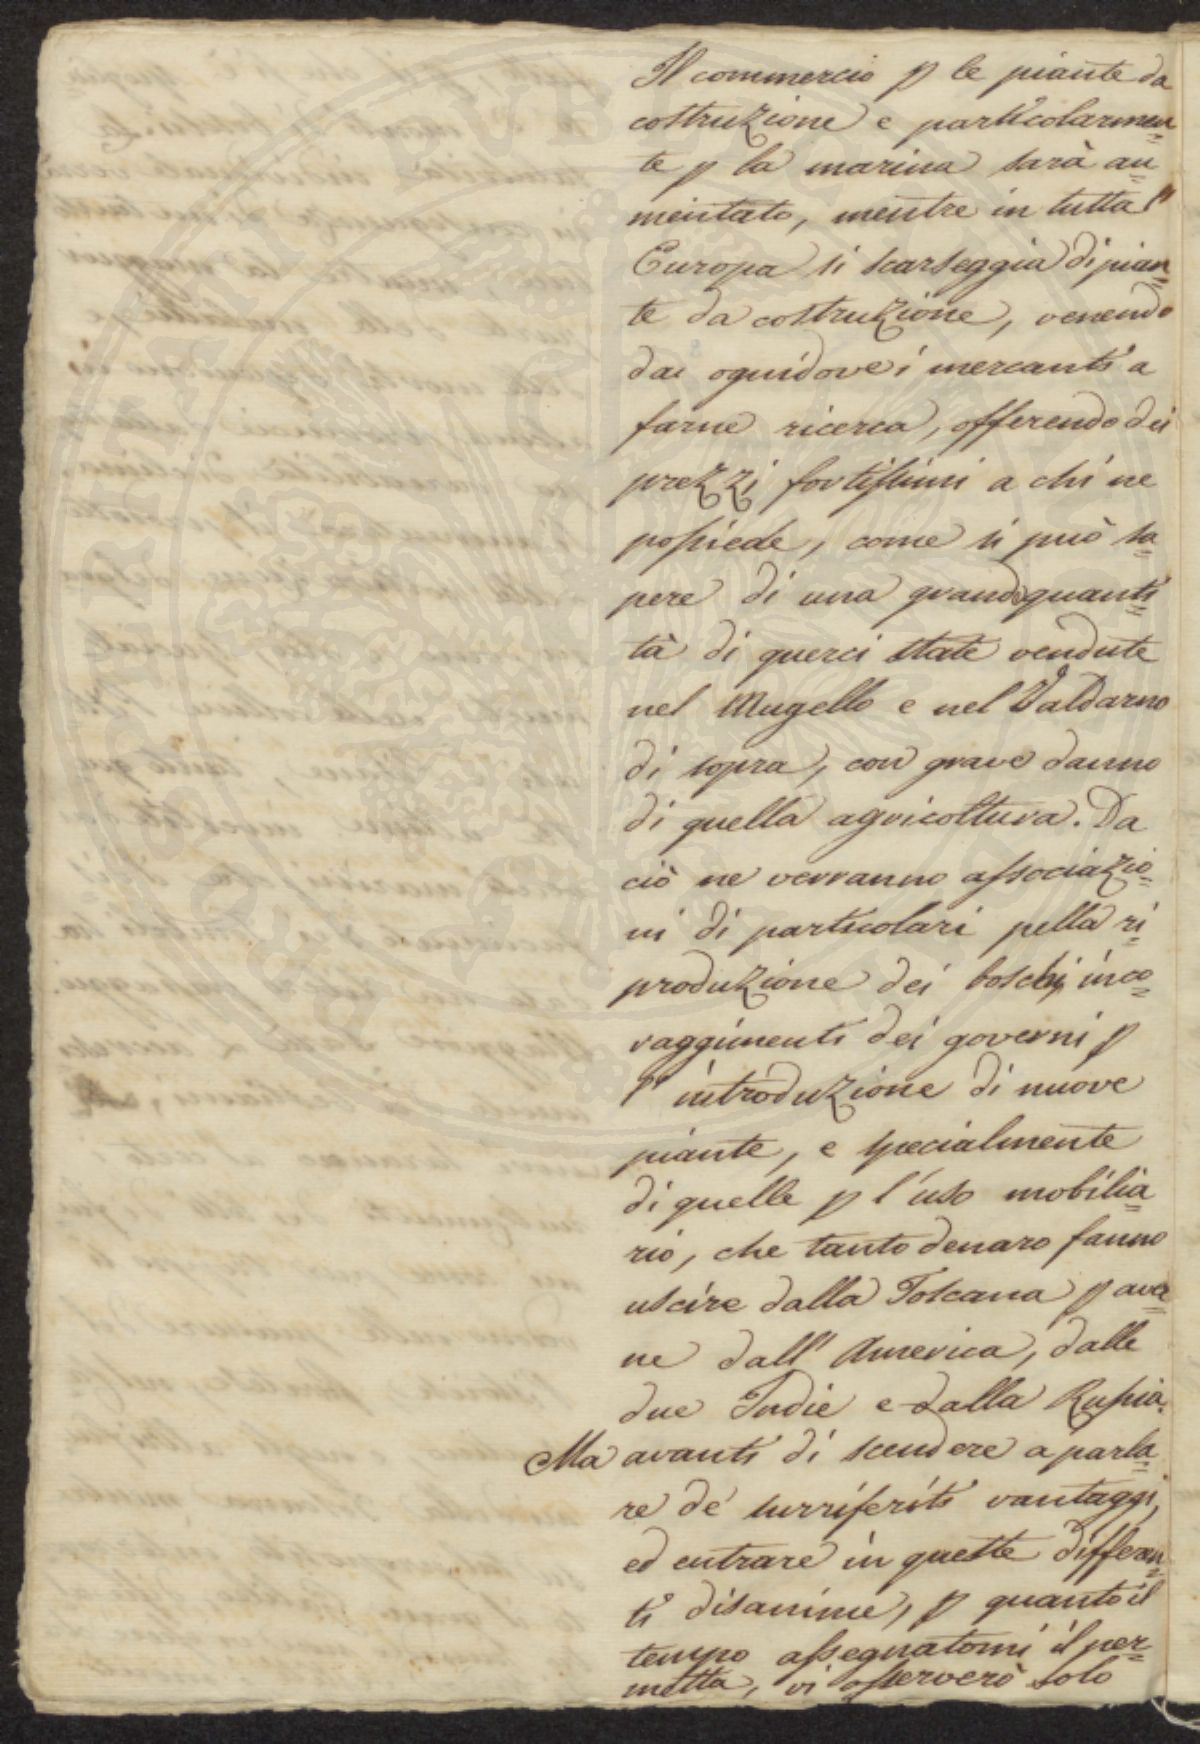 Il commercio p le piante da
costruzione e particolarmen=
te p la marina sarà au=
mentato, mentre in tutta l'
Europa si scarseggia di pian=
te da costruzione, venendo
da ognidove i mercanti a
farne ricerca, offerendo dei
prezzi fortissimi a chi ne
possiede, come si può sa=
pere di una grande quanti=
tà di querci state vendute
nel Mugello e nel Valdarno
di sopra, con grave danno
di quella agricoltura. Da
ciò ne verranno associazio=
ni di particolari pella ri=
produzione dei boschi, inco=
raggimenti dei governi p
l'introduzione di nuove
piante, e specialmente
di quelle p l'uso mobilia=
rio, che tanto denaro fanno
uscire dalla Toscana p aver=
ne dall'America, dalle
due Indie e dalla Russia.
Ma avanti di scendere a parla=
re de' surriferiti vantaggi,
ed entrare in queste differen=
ti disanime, p quanto il
tempo assegnatomi il per=
metta, vi osserverò solo